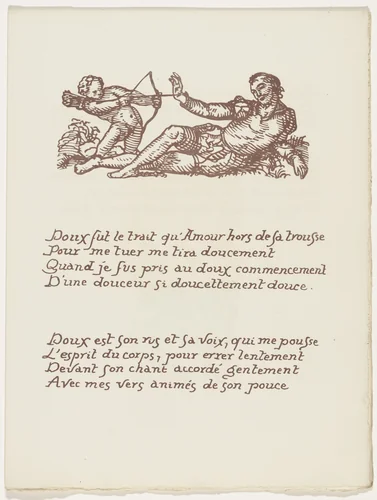 Doux fut le trait qu'Amour hors de sa trousse
Pour me tuer me tira doucement
Quand je fus pris au doux commencement
D'une douceur si doucettement douce.
Doux est son rys et sa voix, qui me pousse
L'esprit du corps, pour errer lentement
Devant son chant accordé gentement
Avec mes vers animés de son pouce